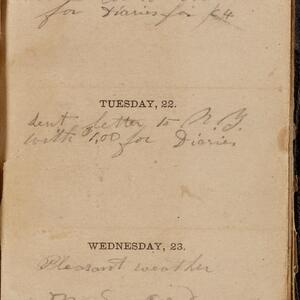 for Diaries for 64
TUESDAY, 22.
Sent letter to N. Y.
with 1,00 for Diaries
WEDNESDAY, 23.
Pleasant weather